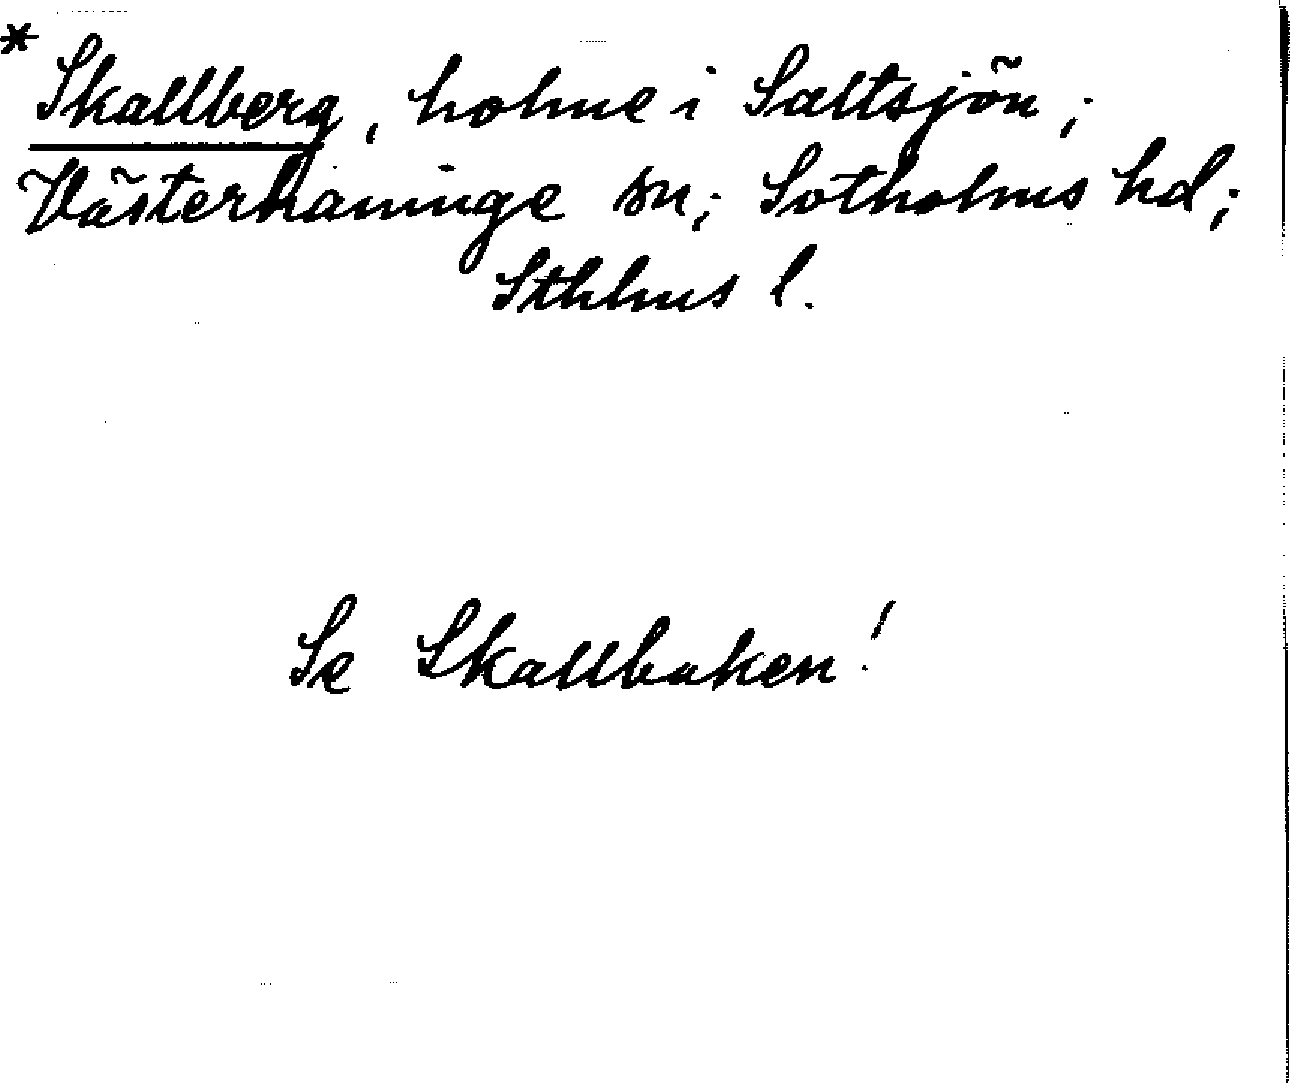 * Skallberg, holme i Saltsjön;
Västerhaninge sn; Sotholms hd;
Sthlms l.
Se Skallbaken!